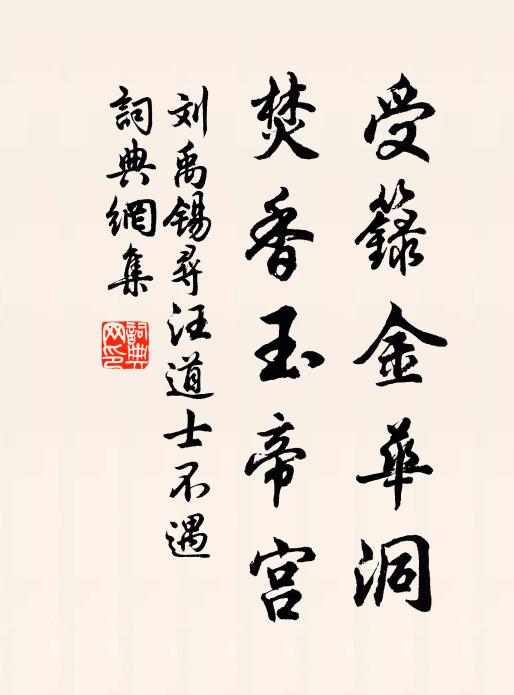 受籙金華洞
焚香玉帝宫
刘禹锡尋汪道士不遇
詞典網集
詞典网印